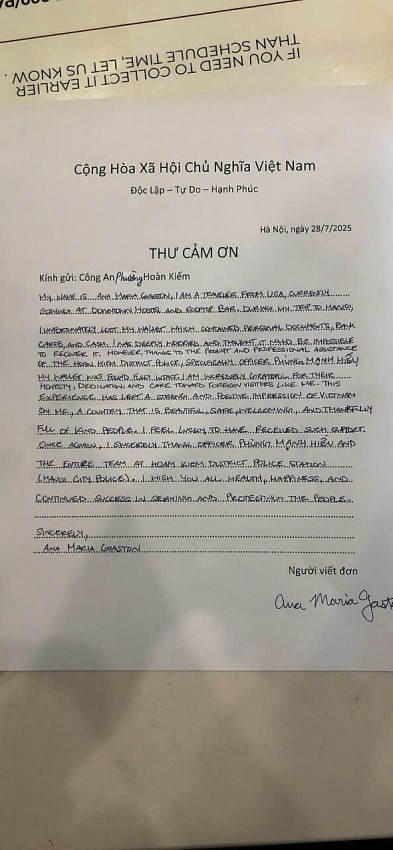 IF YOU NEED TO COLLECT IT EARLIER
THAN SCHEDULE TIME, LET US KNOW.
Cộng Hòa Xã Hội Chủ Nghĩa Việt Nam
Độc Lập – Tự Do – Hạnh Phúc
Hà Nội, ngày 28/7/2025
THƯ CẢM ƠN
Kính gửi: Công An Phường Hoàn Kiếm
MY NAME IS ANA MARIA GRASTON, I AM A TRAVELER FROM USA, CURRENTLY
STAYING AT DOWNTOWN HOSTEL AND ROOFTOP BAR. DURING MY TRIP TO HANOI,
I UNFORTUNATELY LOST MY WALLET WHICH CONTAINED PERSONAL DOCUMENTS, BANK
CARDS, AND CASH. I WAS DEEPLY WORRIED AND THOUGHT IT WOULD BE IMPOSSIBLE
TO RECOVER IT. HOWEVER, THANKS TO THE PROMPT AND PROFESSIONAL ASSISTANCE
OF THE HOAN KIEM DISTRICT POLICE, SPECIFICALLY OFFICER PHÙNG MẠNH HIẾU
MY WALLET WAS FOUND FULLY INTACT. I AM INCREDIBLY GRATEFUL FOR THEIR
HONESTY, DEDICATION AND CARE TOWARD FOREIGN VISITORS LIKE ME. THIS
EXPERIENCE HAS LEFT A STRONG AND POSITIVE IMPRESSION OF VIETNAM
ON ME, A COUNTRY THAT IS BEAUTIFUL, SAFE, WELCOMING, AND THANKFULLY
FULL OF KIND PEOPLE. I FEEL LUCKY TO HAVE RECEIVED SUCH SUPPORT.
ONCE AGAIN, I SINCERELY THANK OFFICER PHÙNG MẠNH HIẾU AND
THE ENTIRE TEAM AT HOAN KIEM DISTRICT POLICE STATION
(HANOI CITY POLICE). I WISH YOU ALL HEALTH, HAPPINESS, AND
CONTINUED SUCCESS IN SERVING AND PROTECTING THE PEOPLE.
SINCERELY,
ANA MARIA GRASTON
Người viết đơn
Ana Maria